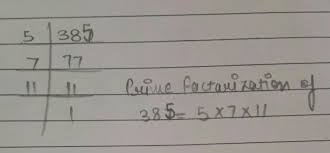 5 | 385
7 | 77
11 | 11 Prime factorization of
1 385 = 5×7×11